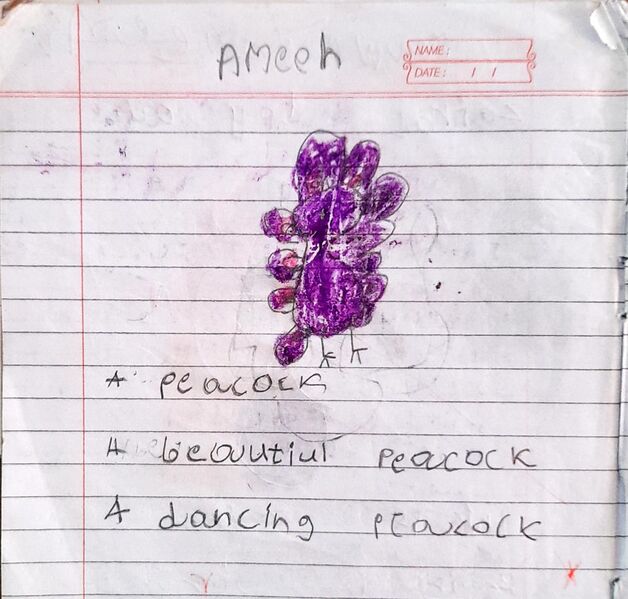 AMeeh
NAME:
DATE: / /
A peacock
A beautiul peacock
A dancing peacock